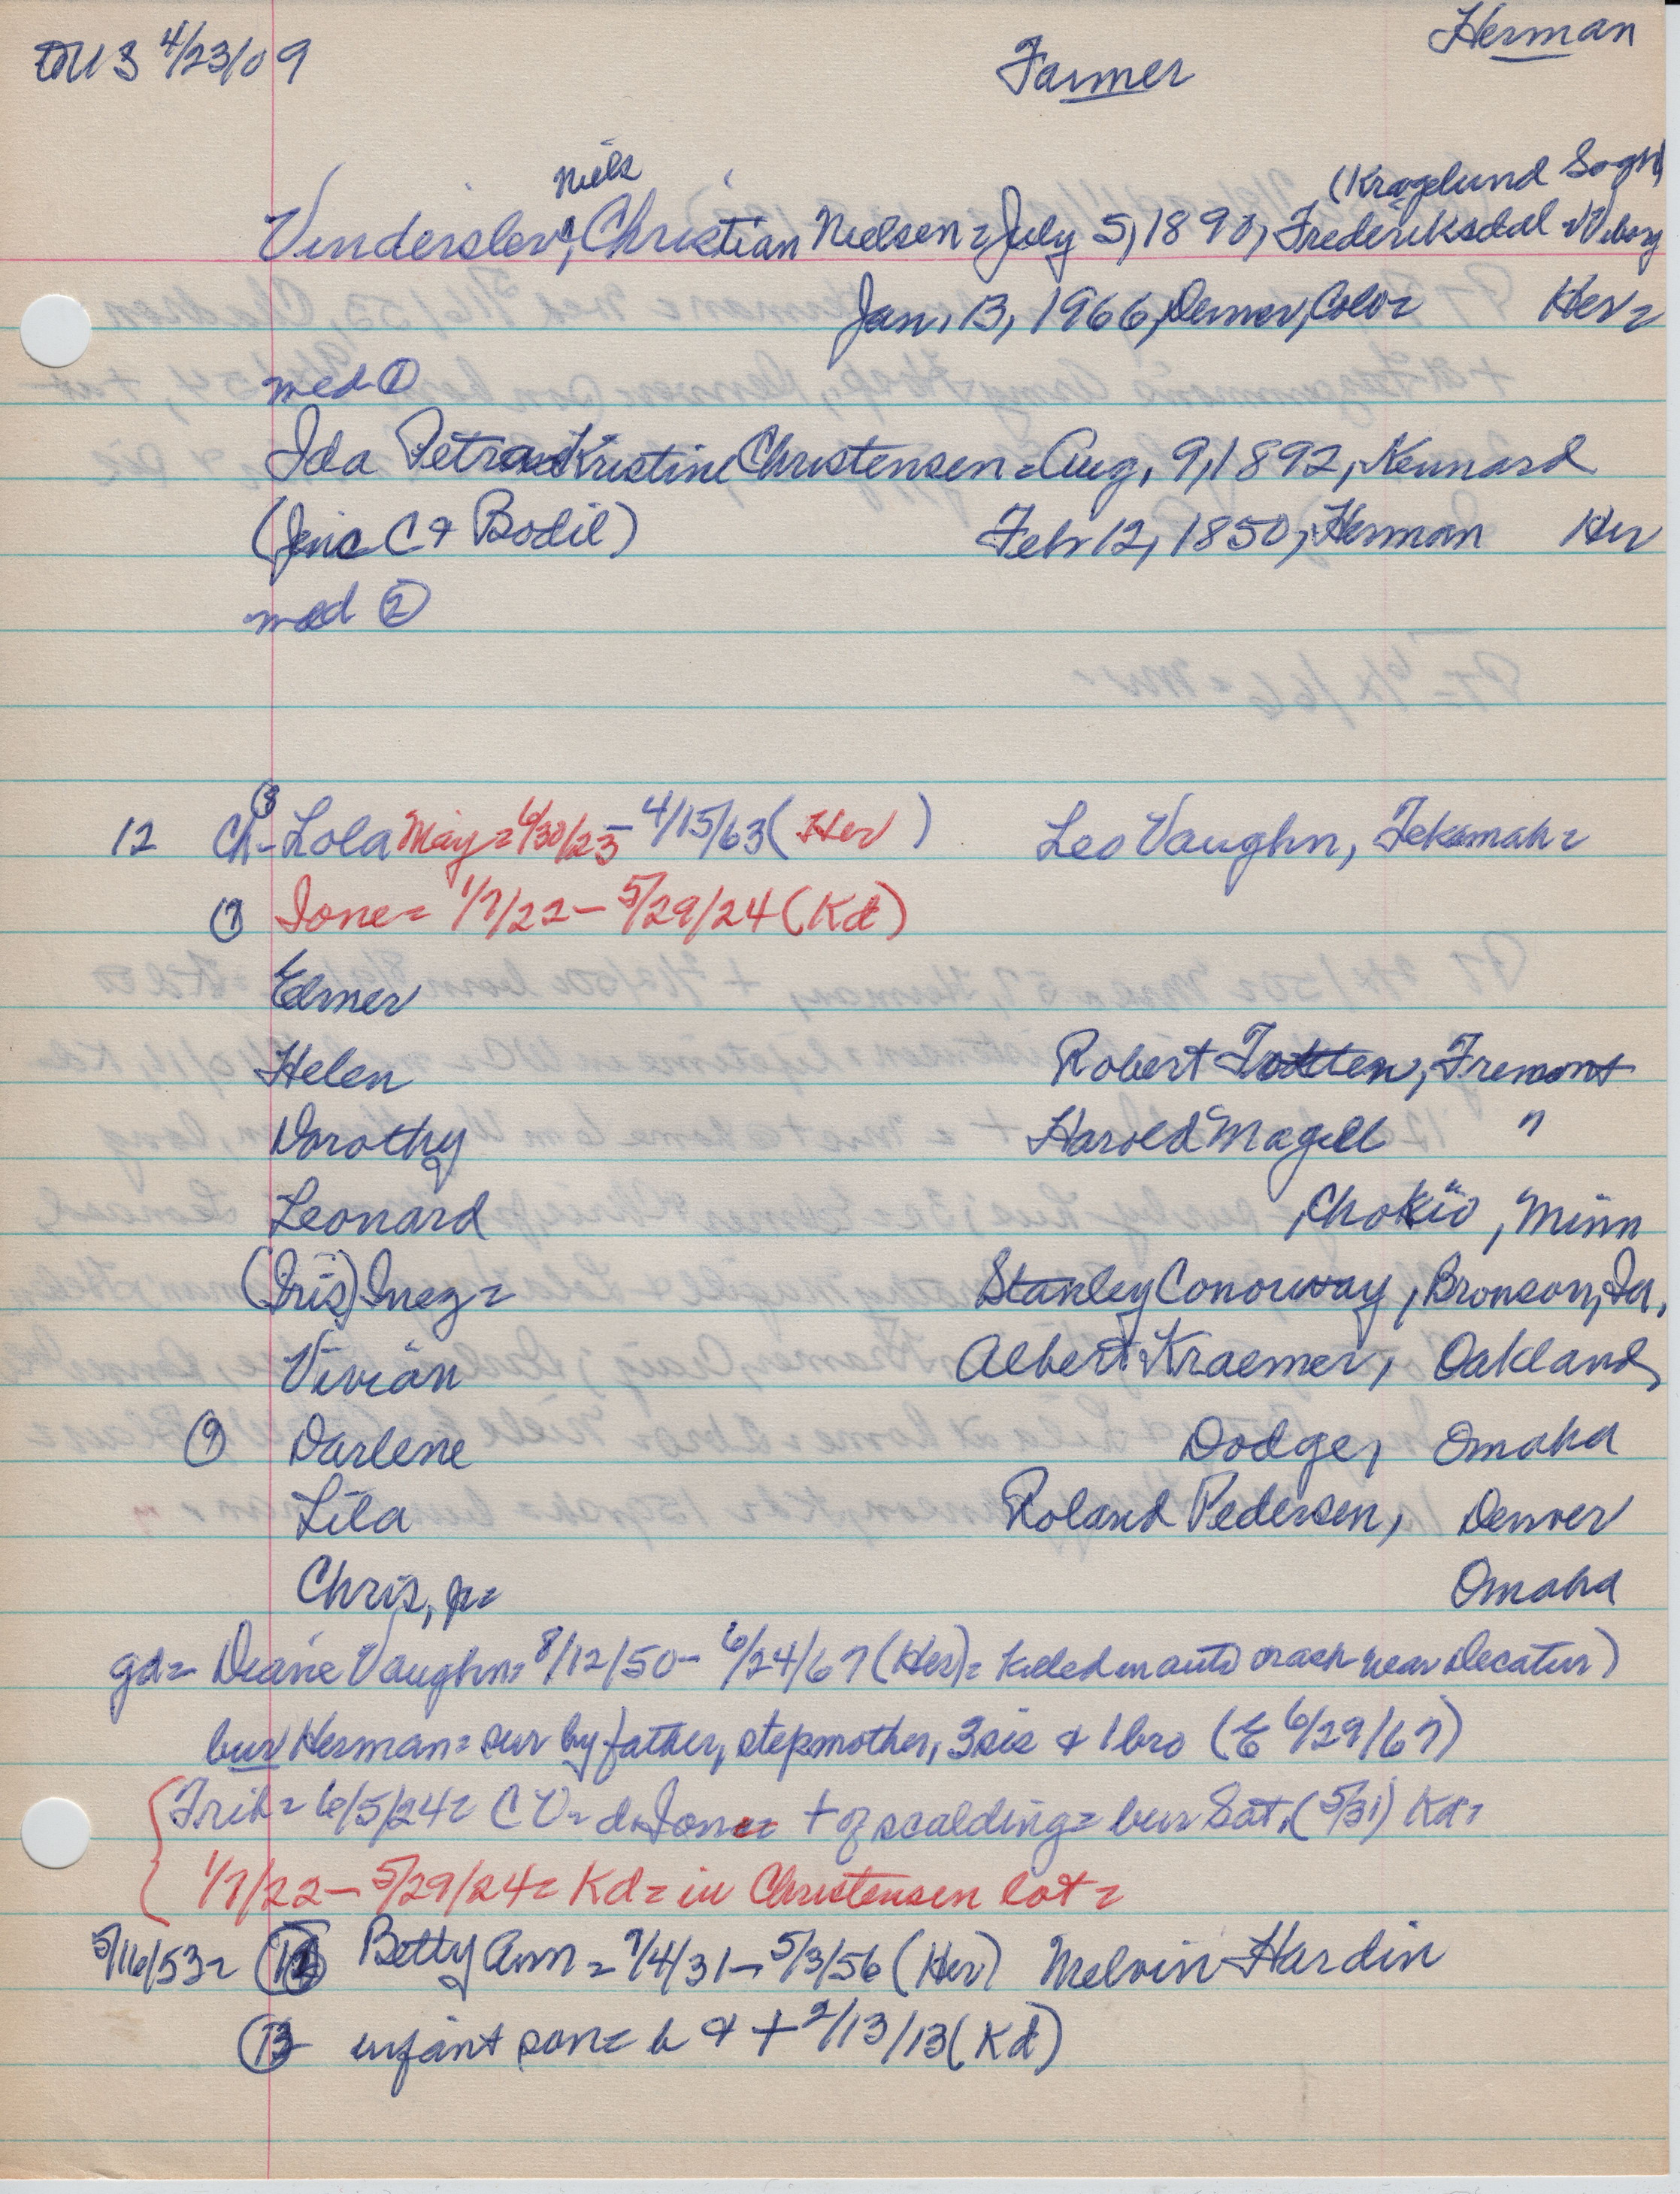 TO U S 4/23/09
Farmer
Herman
Niels
(Kragelund Sogn)
Vinderslev, Christian Nielsen = July 5, 1890, Frederiksdal = Viborg
Jan. 13, 1966, Denver, Colo = Her =
med ①
Ida Petra Kristine Christensen = Aug. 9, 1892, Kennard
(Jens C & Bodil) Feb 12, 1850, Herman Her
med ②
⑧
12 Ch - Lola May = 6/30/23 - 4/15/63 ( Her ) Leo Vaughn, Tekamah =
⑦ Ione = 1/7/22 - 5/29/24 (Kd)
Elmer
Helen Robert Totten, Fremont
Dorothy Harold Magill "
Leonard , Chokio, Minn
(Iris) Inez = Stanley Conorway, Bronson, Ia,
Vivian Albert Kraemer, Oakland,
⑨ Darlene Dodge, Omaha
Lila Roland Pedersen, Denver
Chris, jr = Omaha
gd = Diane Vaughn = 8/12/50 - 6/24/67 (Her) = killed in auto crash near Decatur)
bur Herman = sur by father, stepmother, 3 sis & 1 bro (E 6/29/67)
Trib = 6/5/24 = C V = d. Ione = + of scalding = bur Sat. (5/31) Kd =
1/7/22 - 5/29/24 = Kd = in Christensen lot =
5/16/53 = ⑫ Betty Ann = 7/4/31 - 5/3/56 (Her) Melvin Hardin
⑬ infant son = b & + 2/13/13 (Kd)